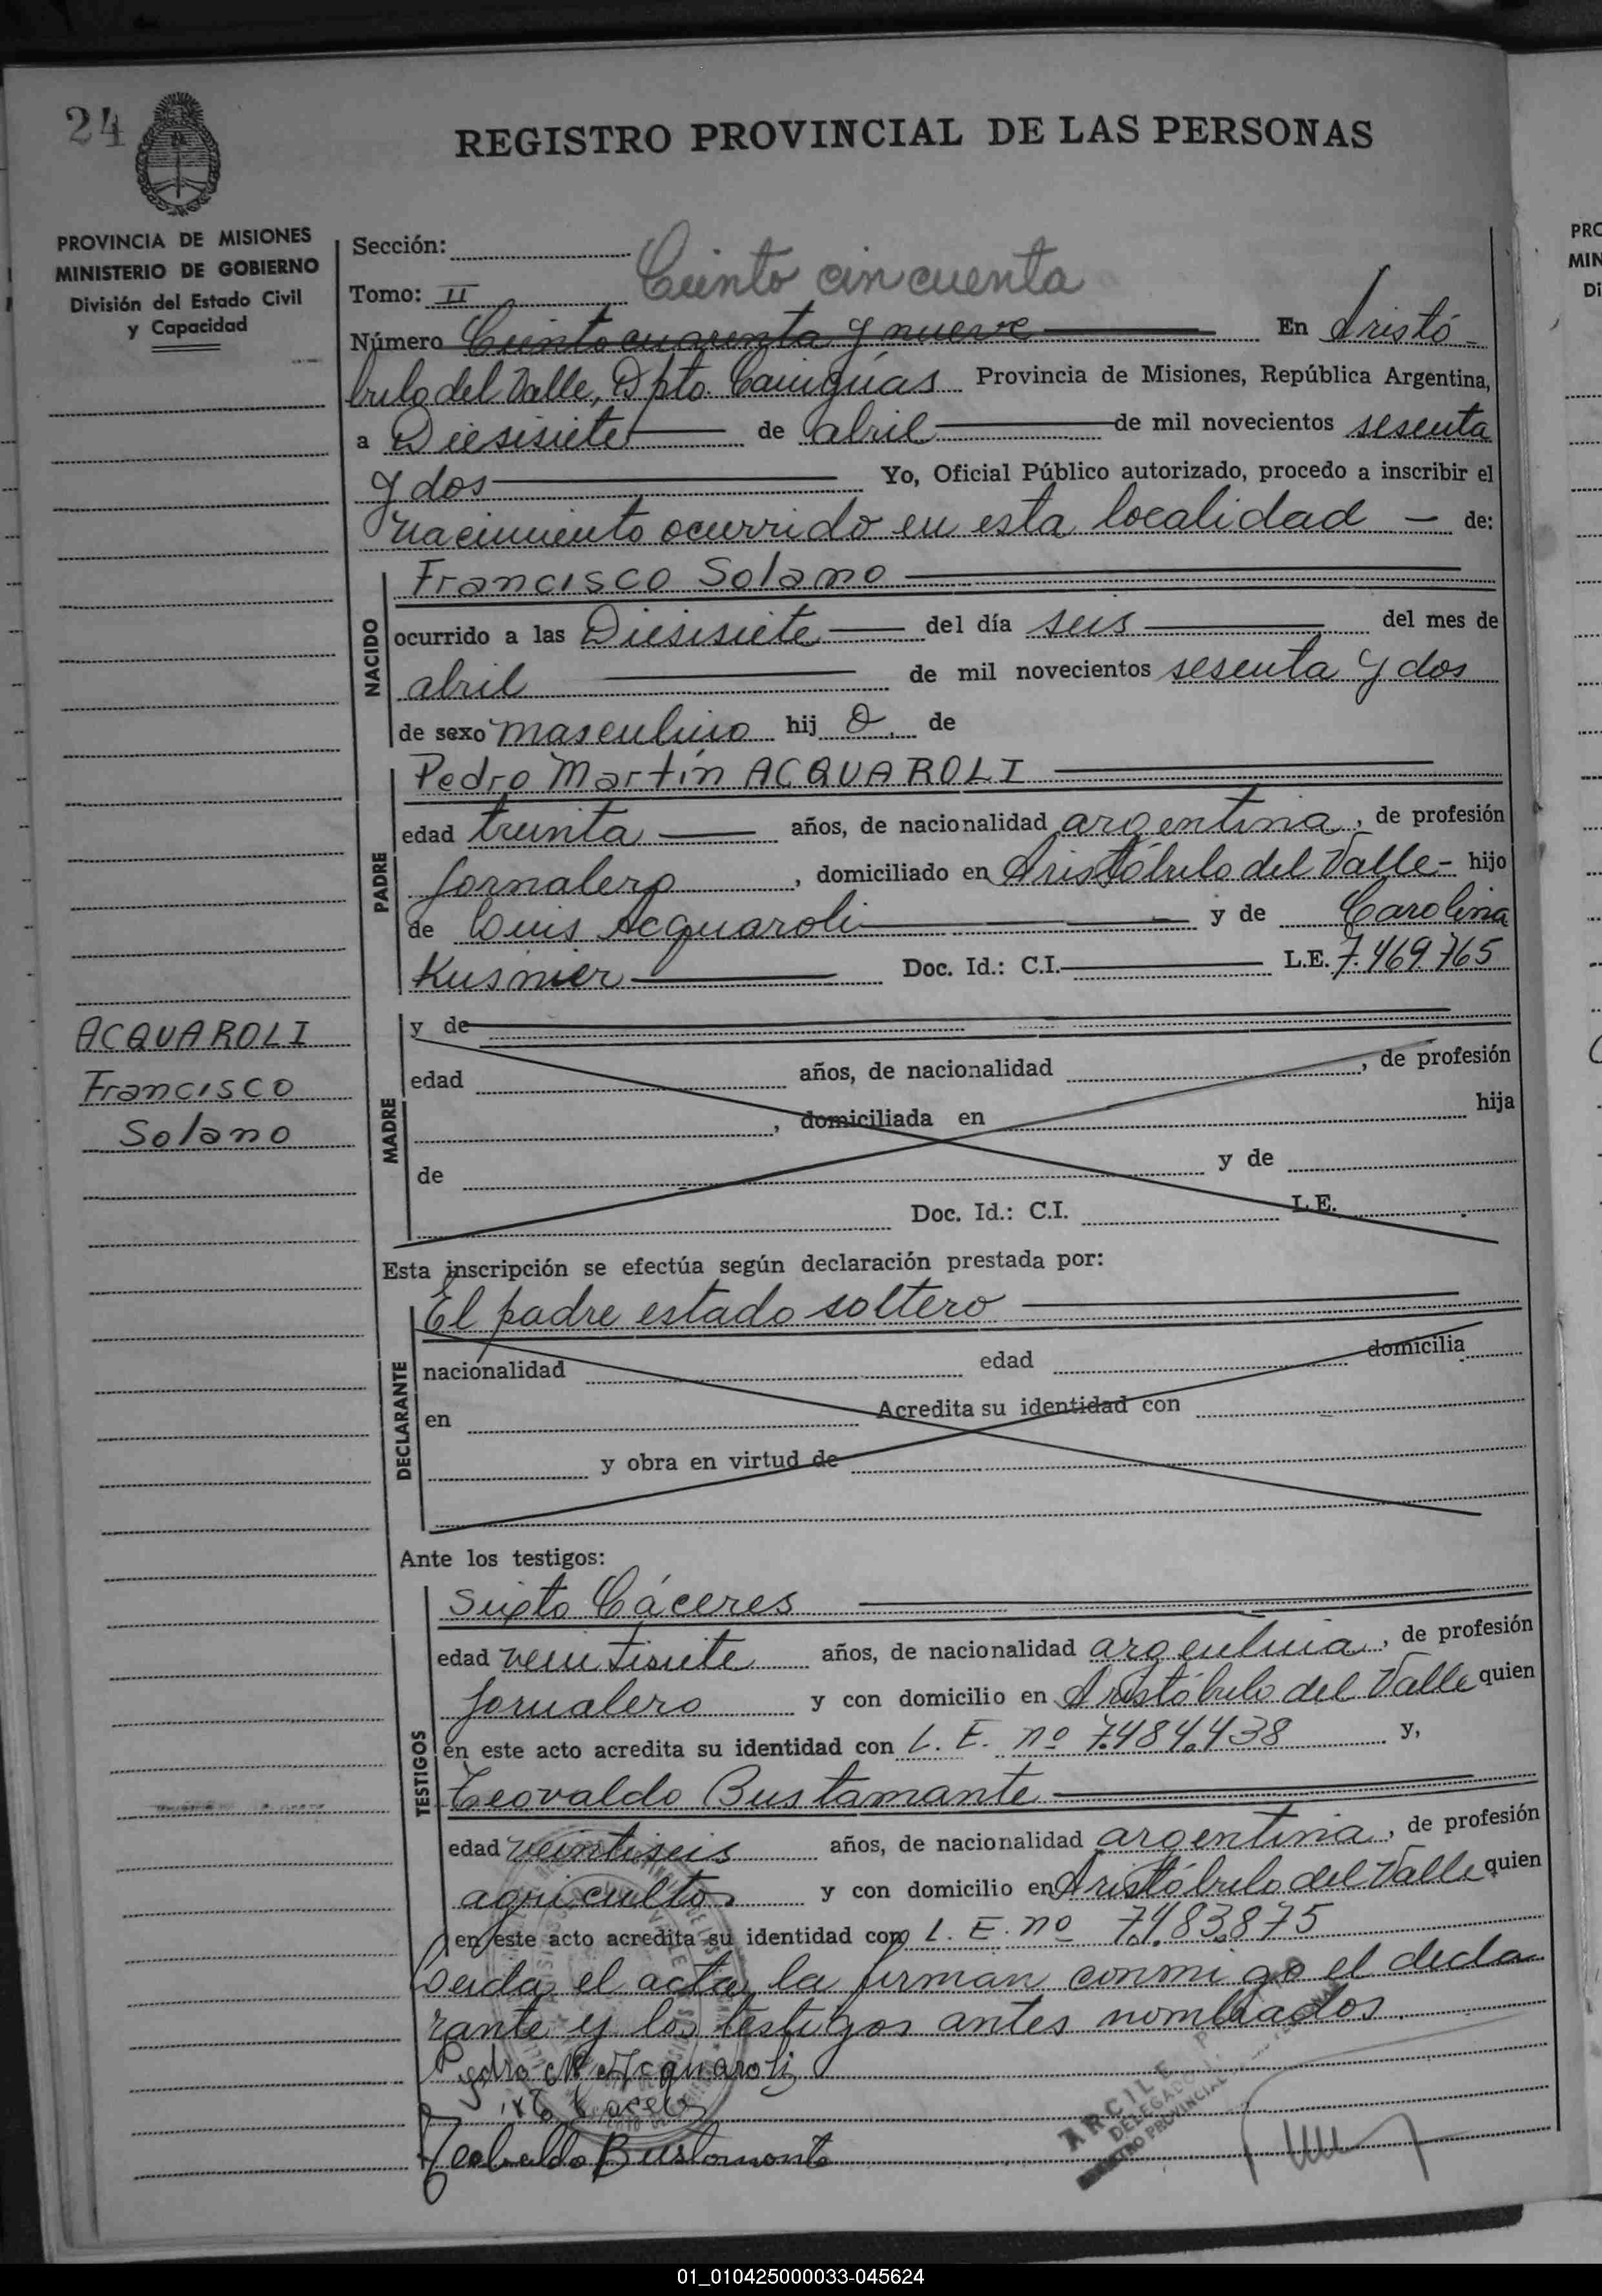 24
REGISTRO PROVINCIAL DE LAS PERSONAS
PROVINCIA DE MISIONES
MINISTERIO DE GOBIERNO
División del Estado Civil
y Capacidad
Sección:
Tomo: II
Ciento cincuenta
Número Ciento cuarenta y nueve En Aristó-
bulo del Valle, Dpto. Cainguás Provincia de Misiones, República Argentina,
a Diesisiete de abril de mil novecientos sesenta
y dos Yo, Oficial Público autorizado, procedo a inscribir el
nacimiento ocurrido en esta localidad — de:
NACIDO
Francisco Solano
ocurrido a las Diesisiete del día seis del mes de
abril de mil novecientos sesenta y dos
de sexo masculino hij o. de
PADRE
Pedro Martín ACQUAROLI
edad treinta años, de nacionalidad argentina, de profesión
Jornalero, domiciliado en Aristóbulo del Valle - hijo
de Luis Acquaroli y de Carolina
Kusnier Doc. Id.: C.I. L.E. 7.469.765
ACQUAROLI
Francisco
Solano
MADRE
y de
edad años, de nacionalidad , de profesión
, domiciliada en hija
de y de
Doc. Id.: C.I. L.E.
Esta inscripción se efectúa según declaración prestada por:
DECLARANTE
El padre estado soltero
nacionalidad edad domicilia
en Acredita su identidad con
y obra en virtud de
Ante los testigos:
TESTIGOS
Sixto Cáceres
edad veintisiete años, de nacionalidad argentina, de profesión
Jornalero y con domicilio en Aristóbulo del Valle quien
en este acto acredita su identidad con L. E. nº 7.484.438 y,
Teovaldo Bustamante
edad veintiseis años, de nacionalidad argentina, de profesión
agricultor y con domicilio en Aristóbulo del Valle quien
en este acto acredita su identidad con L. E. nº 7.483.875
Leida el acta la firman conmigo el decla
rante y los testigos antes nombrados.
Pedro M Acquaroli
Teobaldo Bustamante
DELEGADO
PROVINCIAL
PRO
MIN
Di
01_010425000033-045624